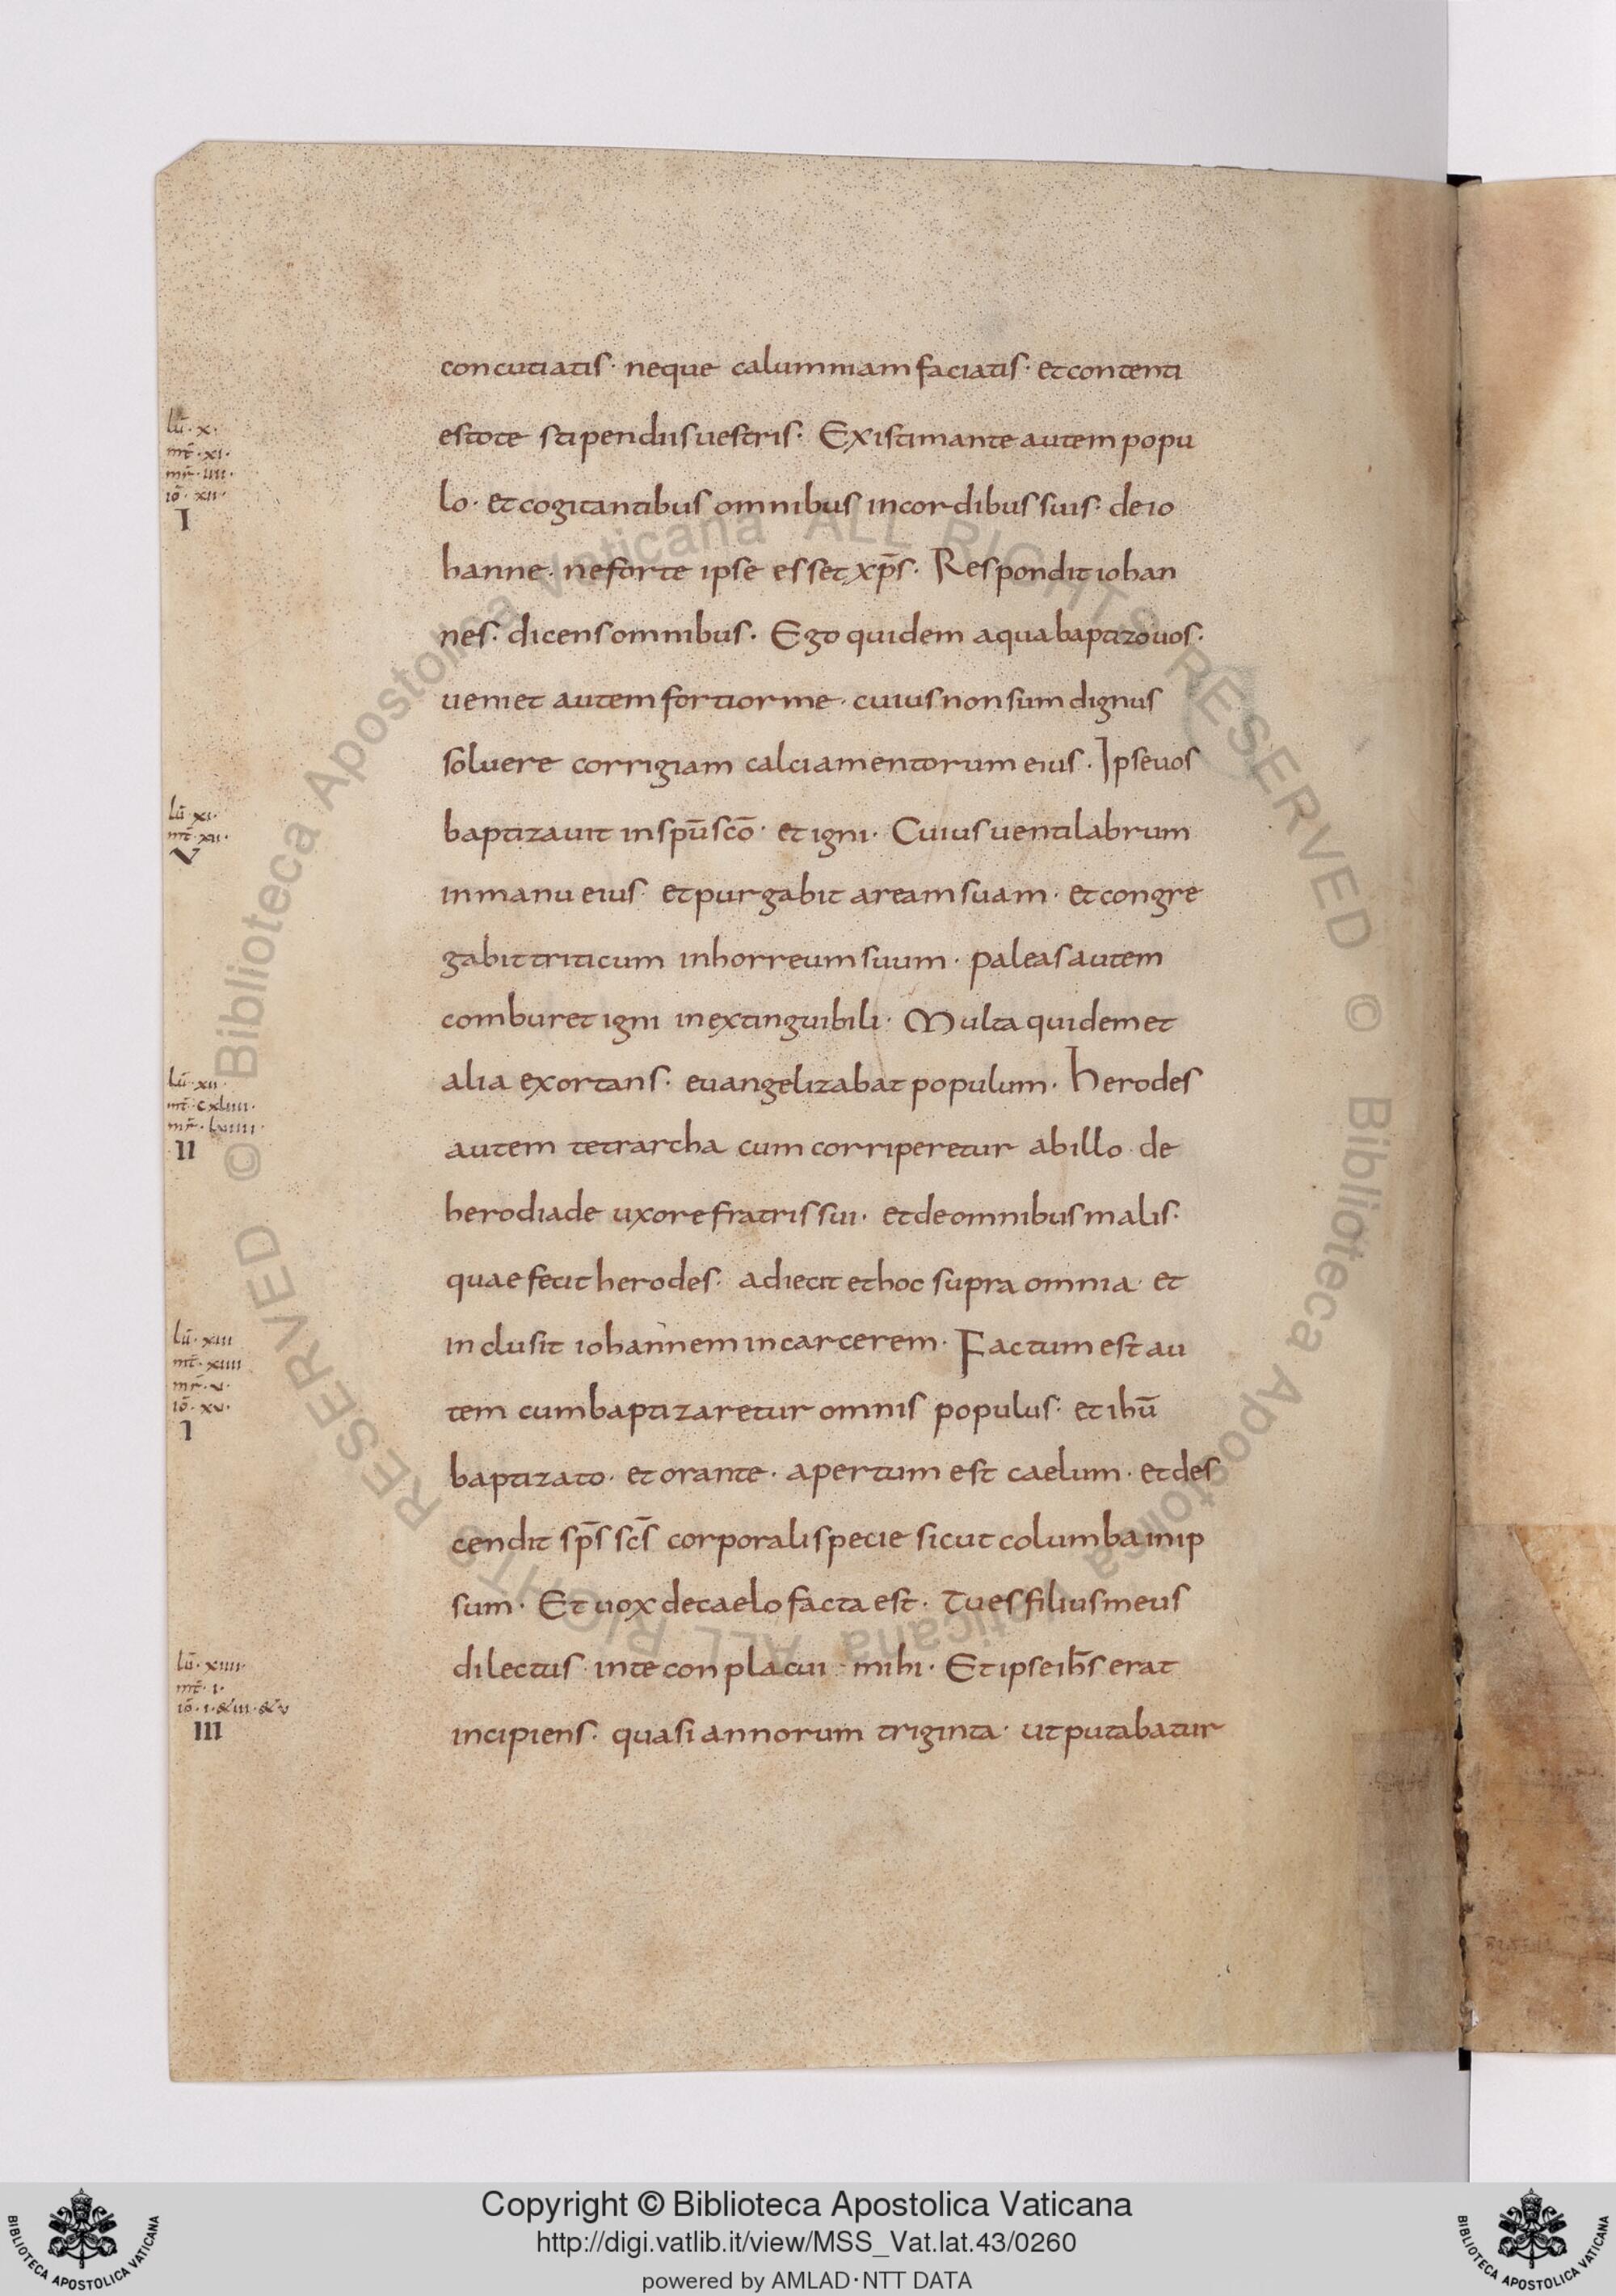 concutiatis· neque calumniam faciatis· et contenti
estote stipendiis uestris· Existimante autem popu
lo· et cogitantibus omnibus in cordibus suis· de io
hanne· ne forte ipse esset xp̄s· Respondit iohan
nes· dicens omnibus· Ego quidem aqua baptizo uos·
ueniet autem fortior me· cuius non sum dignus
soluere corrigiam calciamentorum eius· Ipse uos
baptizauit in spū scō· et igni· Cuius uentilabrum
in manu eius· et purgabit aream suam· et congre
gabit triticum in horreum suum· paleas autem
comburet igni inextinguibili· Multa quidem et
alia exortans· euangelizabat populum· Herodes
autem tetrarcha cum corriperetur ab illo· de
herodiade uxore fratris sui· et de omnibus malis·
quae fecit herodes· adiecit et hoc supra omnia· et
inclusit iohannem in carcerem· Factum est au
tem cum baptizaretur omnis populus· et ihū
baptizato· et orante· apertum est caelum· et des
cendit sp̄s sc̄s corporali specie sicut columba in ip
sum· Et uox de caelo facta est· Tu es filius meus
dilectus· in te conplacui mihi· Et ipse ih̄s erat
incipiens· quasi annorum triginta· ut putabatur
lū· x·
mt̄· xi·
mr̄· iiii·
iō· xii·
I
lū· xi·
mt̄· xii·
V
lū· xii·
mt̄· cxliiii·
mr̄· lxiiii·
II
lū· xiii
mt̄· xiiii
mr̄· v·
iō· xv·
I
lū· xiiii·
mt̄· i·
iō· i· & iii· & v
III
© Biblioteca Apostolica Vaticana ALL RIGHTS RESERVED
© Biblioteca Apostolica Vaticana ALL RIGHTS RESERVED
BIBLIOTECA APOSTOLICA VATICANA
Copyright © Biblioteca Apostolica Vaticana
http://digi.vatlib.it/view/MSS_Vat.lat.43/0260
powered by AMLAD·NTT DATA
BIBLIOTECA APOSTOLICA VATICANA